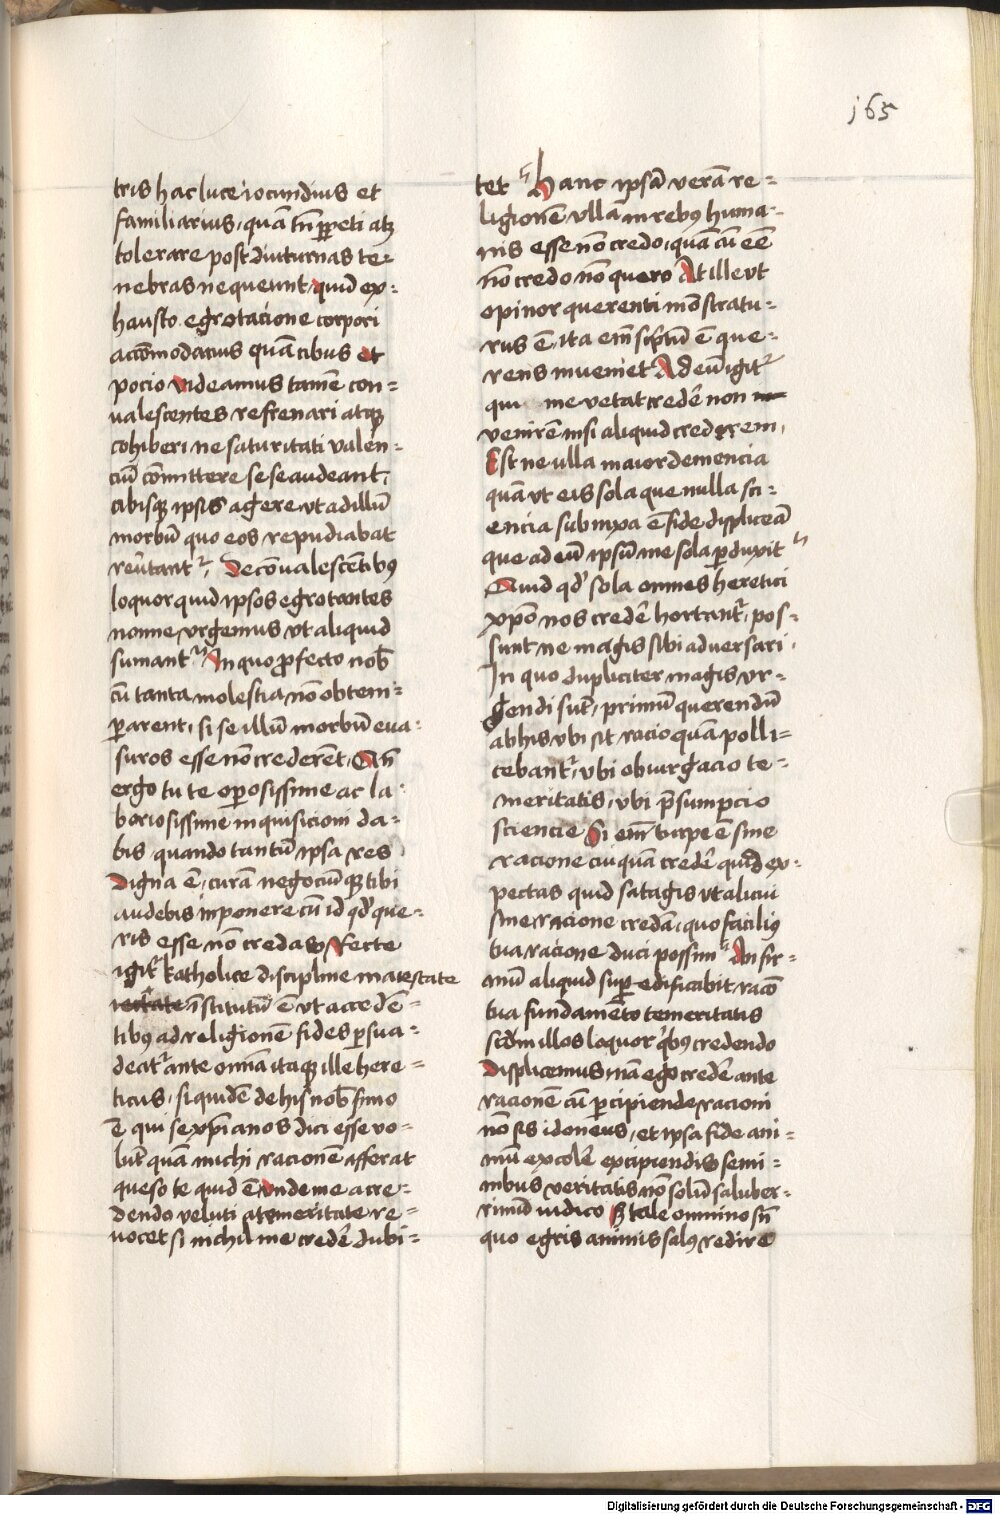 165
tris hac luce iocundius et
familiarius, quā tn̄ ꝑpeti atqꝫ
tolerare post diuturnas te-
nebras nequeunt quid ex-
hausto egrotacione corpori
accōmodacius quā cibus et
pocio videamus tamē con-
ualescentes refrenari atqꝫ
cohiberi ne saturitati valen-
ciū cōmittere sese audeant,
cibisqꝫ ipsis agere vt ad illū
morbū quo eos repudiabat
reūtant᷑, De cōualescētibꝰ
loquor quid ipsos egrotantes
nonne vrgemus vt aliquid
sumant In quo ꝓfecto nob̄
cū tanta molestia nō obtem-
ꝑarent, si se illū morbū eua-
suros esse nō crederēt, Qn̄
ergo tu te oꝑosissime ac la-
boriosissime inquisicioni da-
bis quando tantū ipsa res
digna ē, curam negociūqꝫ tibi
audebis inponere cū id qd̕ que-
ris esse nō credas Recte
igit᷑ katholice discipline maiestate
īstitutū ē vt accedē-
tibꝰ ad religionē fides ꝑsua-
deat᷑ ante om̄ia itaqꝫ ille here-
ticus, siquidē de his nob̄ sermo
ē qui se xp̄ianos dici esse vo-
lūt quā michi racionē afferat
queso te quid ē vnde me a cre-
dendo veluti a temeritate re-
uocet si nichil me credēr dubi-
tet Hanc ipsā verā re-
ligionē vllā in rebꝰ huma-
nis esse nō credo, quā cū eē
nō credo nō quero At ille vt
opinor querenti mōstratu-
rus ē, ita em̄ scp̄tū ē que-
rens inueniet Ad eū igit᷑
qui me vetat credēr non
venirē nisi aliquid crederem,
Est ne ulla maior demencia
quā vt eis sola que nulla sci-
encia subnixa ē fide displiceā
que ad eū ipsū me sola ꝑduxit
Quid qd̕ sola omnes heretici
xp̄o nos credēr hortant᷑, pos-
sunt ne magis sibi aduersari,
In quo dupliciter magis vr-
gendi sūt, primū querendū
ab his vbi sit racio quā polli-
cebant᷑, vbi obiurgacio te-
meritatis, vbi p̄sumpcio
sciencie Si em̄ turpe ē sine
racione cuiquā credēr quid ex-
pectas quid satagis vt alicui
sine racione credā, quo facilius
tua racione duci possim An fir-
mū aliquid suꝑedificabit racō
tua fundamēto temeritatis
scd̄m illos loquor q̕bꝰ credendo
displicemus nā ego credēr ante
racionē cū ꝑcipiende racioni
nō sis idoneus, et ipsa fide ani-
mū excolēr excipiendis semi-
nibus veritatis nō solū saluber-
rimū iudico sꝫ tale omnino sn̄
quo egris animis salꝰ redire
Digitalisierung gefördert durch die Deutsche Forschungsgemeinschaft - DFG